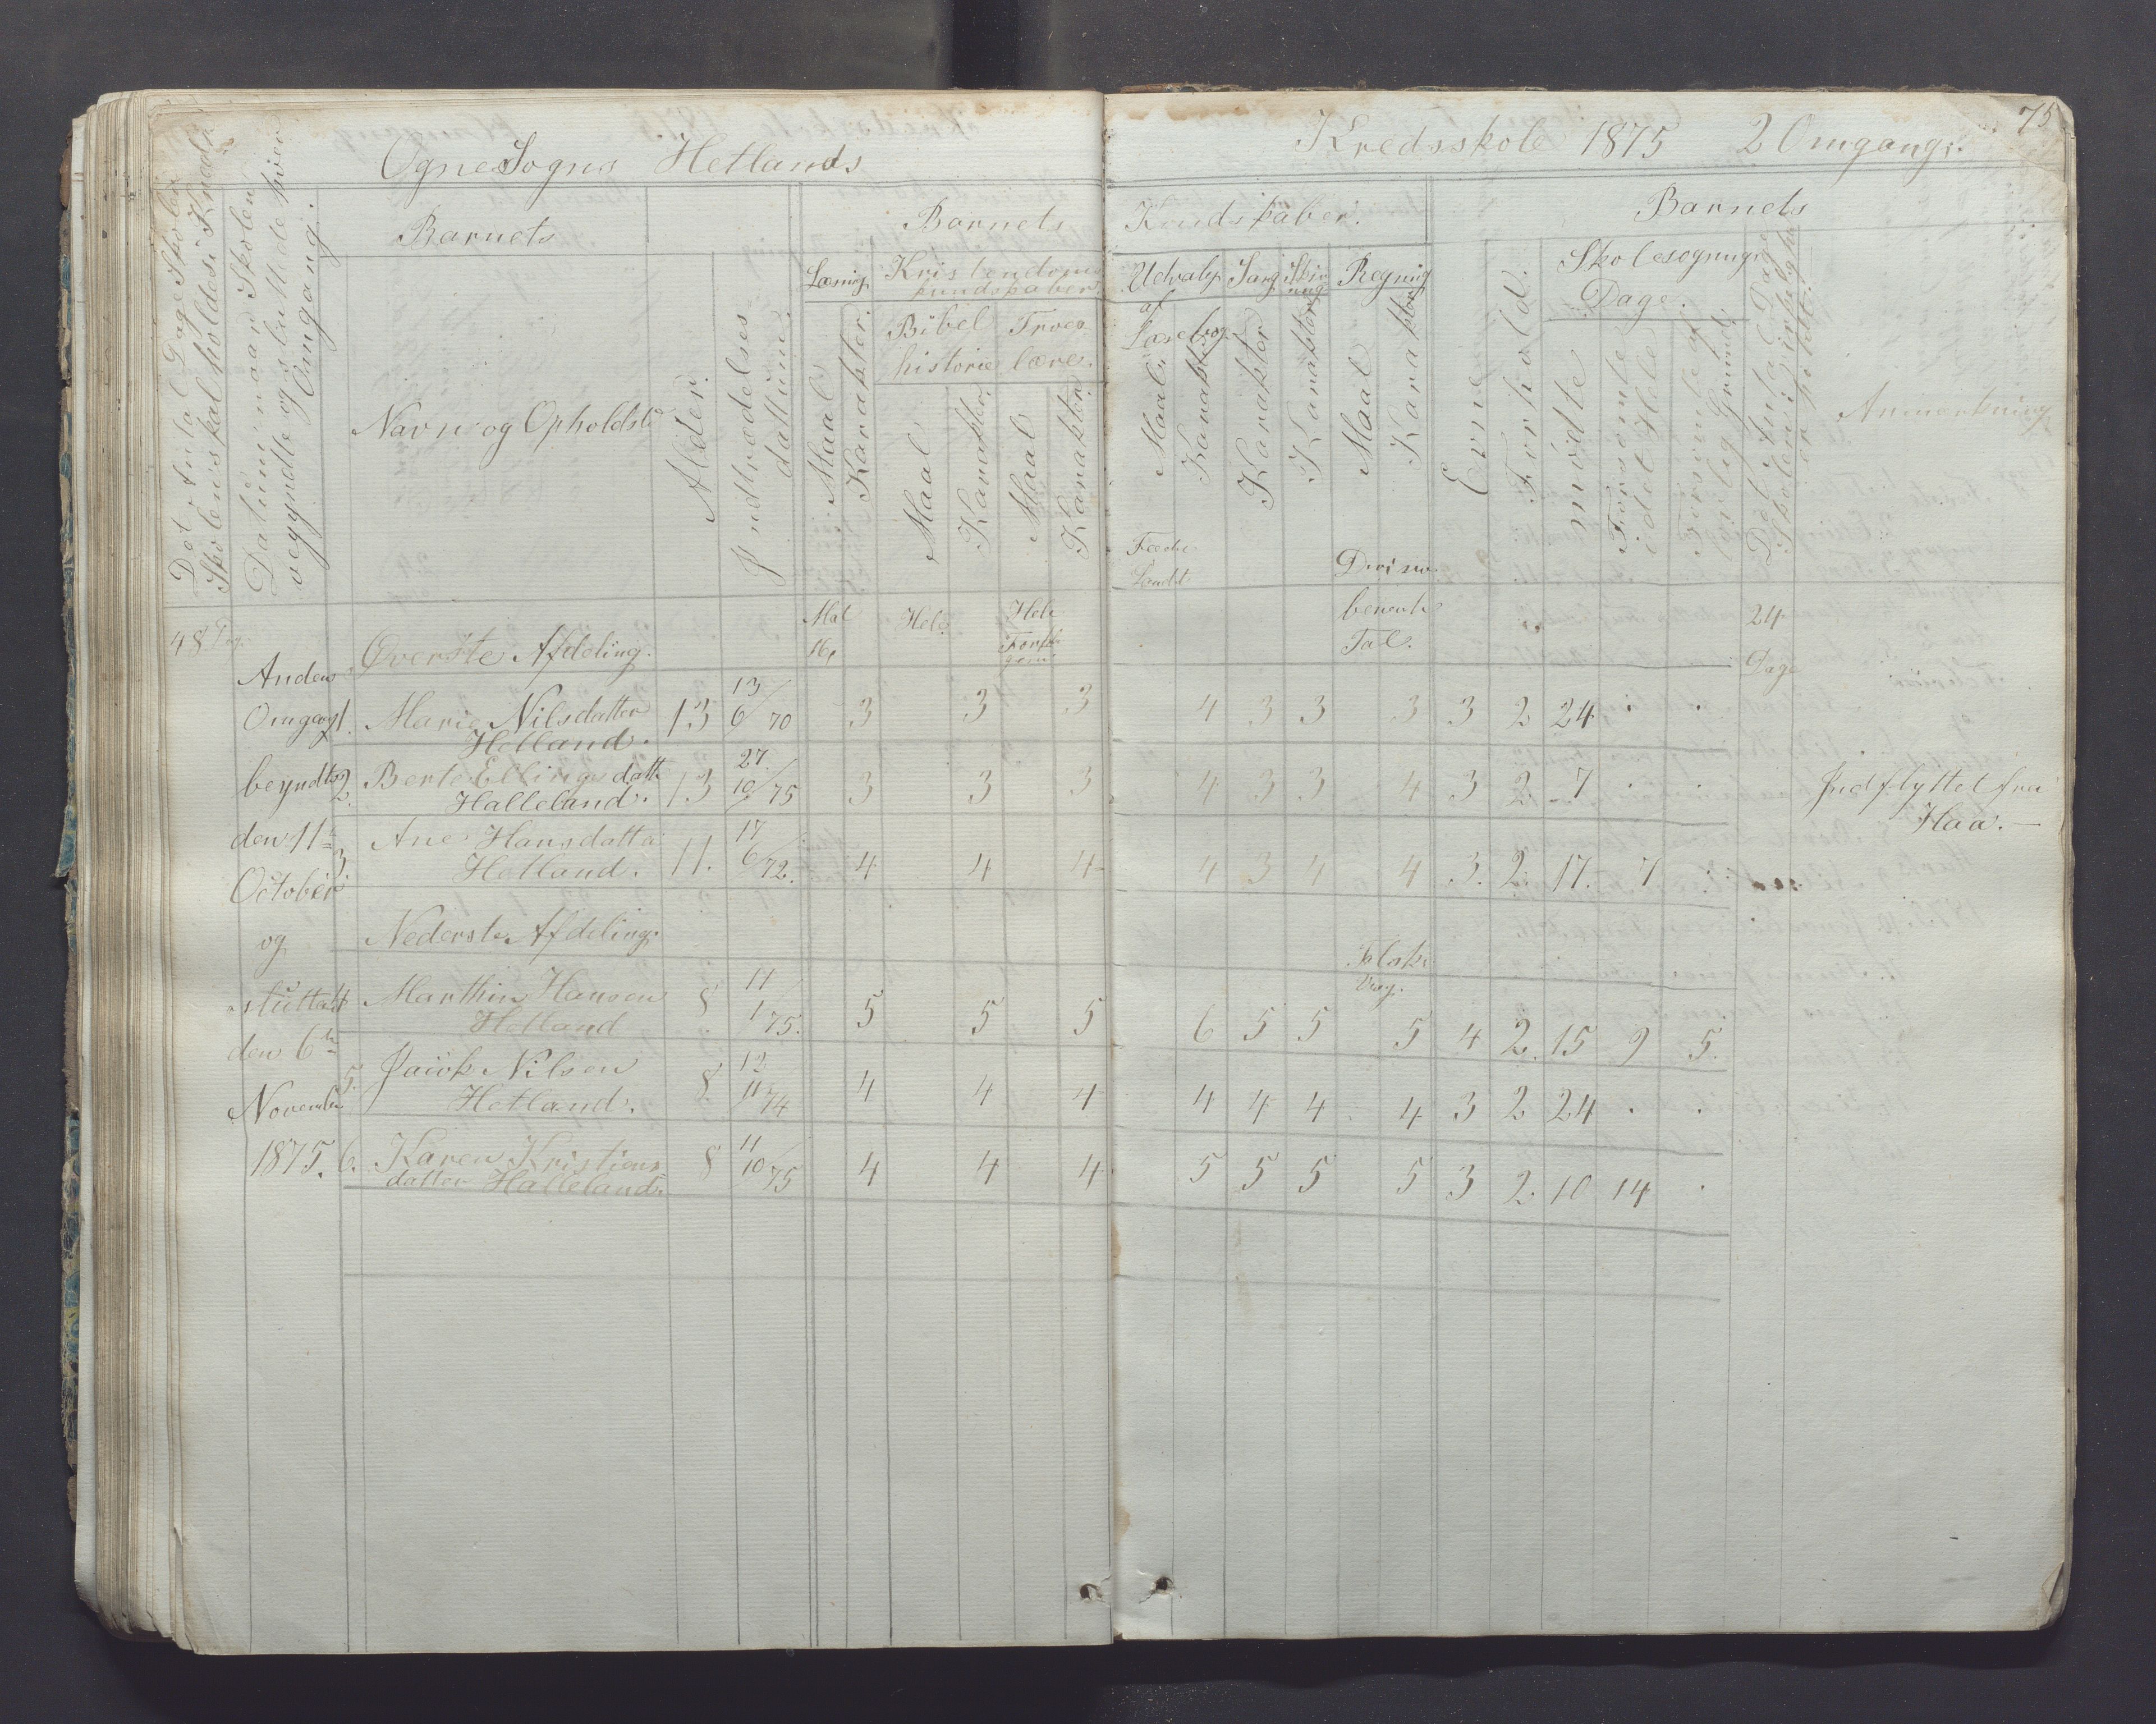 75
Ogne Sogns Hetlands Kredsskole 1875 2 Omgang.
Det Antal Dage Skolen
Skolen skal holdes i Kredse
Datum naar Skolen
begyndte og sluttede hver
Omgang.
Barnets
Navn og Opholdsted
Alder.
Indtrædelses
datum.
Barnets Kundskaber.
Læsnig
Maal
Karakter.
Kristendoms
kundskaber
Bibel
historie
Maal
Karakter
Troes
lære.
Maal
Karakter
Udvalg
af
Læsebog.
Maal
Karakter
Sang
Karakter
Skriv
ning
Karakter
Regning
Maal
Karakter
Barnets
Evne
Forhold.
Skolesøgnings
Dage.
mødte
Forsømte
i det Hele
Forsømte af
Det Antal Dage
Skolen i virkelighed
er holdt.
Anmerkning
48 Dage
Øverste Afdeling.
Hele
Hele
Divisio
benevnte
Tal.
24
Dage
Anden
Omgang
beyndte
den 11te
October
og
sluttedt
den 6te
November
1875.
1. Marie Nilsdatter
Hetland. 13 13/6 70 3 3 3 4 3 3 3 3 2 24 . .
2. Berte Ellingsdatt
Halleland. 13 27/10 75 3 3 3 4 3 3 4 3 2. 7 . . Indflyttet fra
Haa.
3. Ane Hansdatter
Hetland. 11. 17/6 72. 4 4 4 4 3 4 4 3. 2. 17. 7 .
Nederste Afdeling.
4 Marthin Hansen
Hetland 8. 11/1 75. 5 5 5 6 5 5 5 4 2. 15 9 5.
5. Jakob Nilsen
Hetland. 8. 12/11 74 4 4 4 4 4 4 4 3 2 24 . .
6. Karen Kristians
datter Halleland. 8 11/10 75 4 4 4 5 5 5 5 3 2. 10 14 .